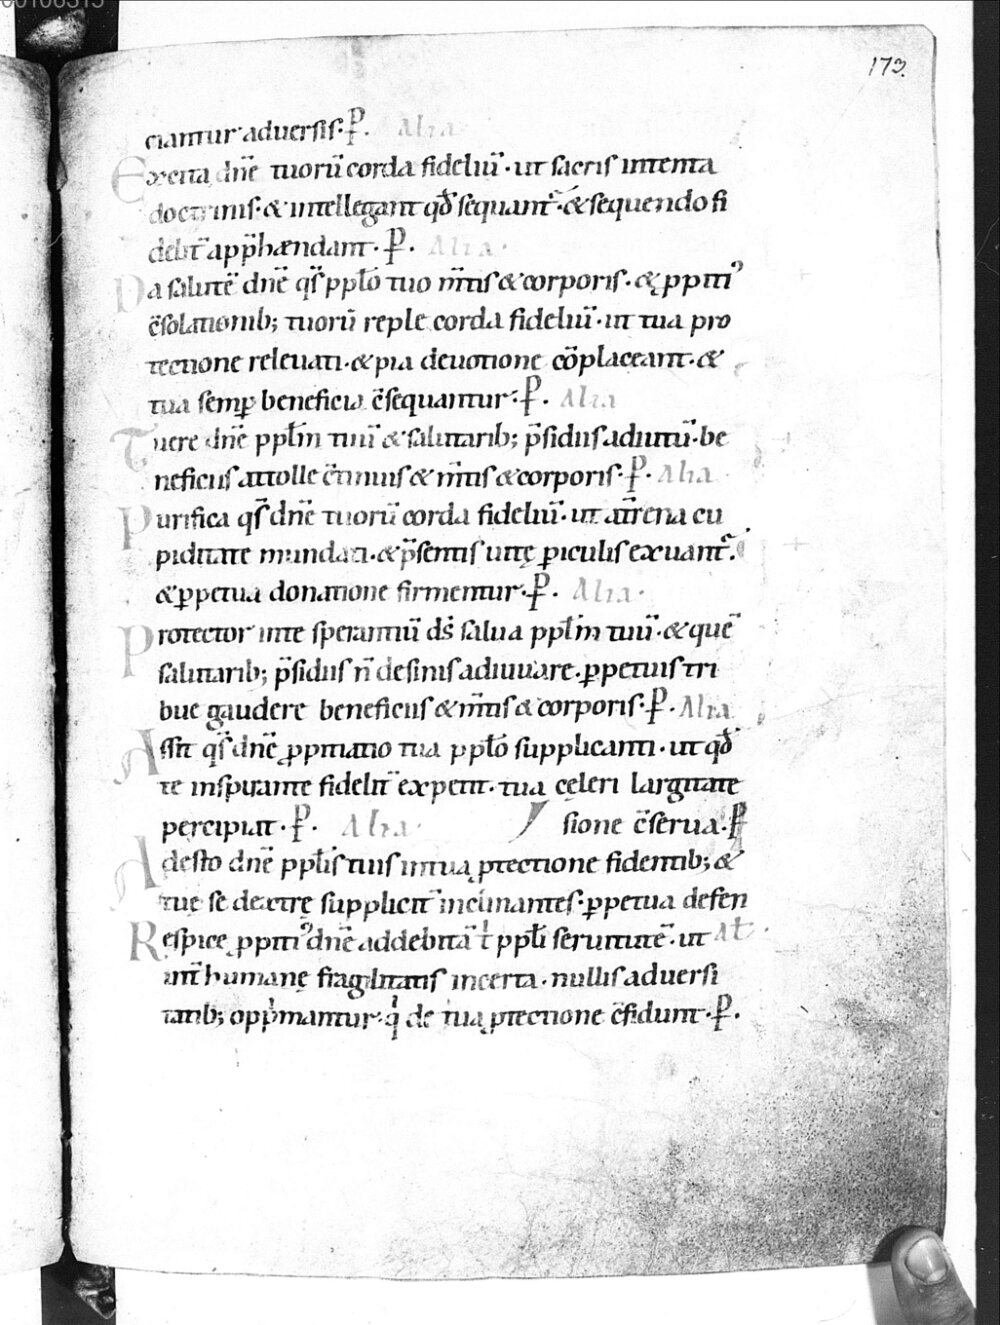 00106315
173.
ciantur aduersis· P̄. Alia
Excita dn̄e tuorū corda fideliū· ut sacris intenta
doctrinis· & intellegant qđ sequant᷑· & sequendo fi
delit̄ app̄hændant· P̄. Alia·
Da salutē dn̄e qs̄ pplō tuo m̄tis & corporis· & ppiti᾽
c̄solationib; tuorū reple corda fideliū· ut tua pro
tectione releuati· & pia deuotione cōplaceant· &
tua semꝑ beneficia c̄sequantur· P̄. Alia
Tuere dn̄e pplm̄ tuū & salutarib; p̄sidiis adiutū· be
neficiis attolle c̄tinuis & m̄tis & corporis· P̄. Alia
Purifica qs̄ dn̄e tuorū corda fideliū· ut a tr̄rena cu
piditate mundati· & p̄sentis uitę ꝑiculis exuant᷑·
& ꝑpetua donatione firmentur· P̄. Alia·
Protector inte sperantiū ds̄ salua pplm̄ tuū· & quē
salutarib; p̄sidiis n̄ desinis adiuuare· ꝑpetuis tri
bue gaudere beneficiis & m̄tis & corporis· P̄. Alia
Assit qs̄ dn̄e ꝓpitiatio tua pplō supplicanti· ut qđ
te inspirante fidelit̄ expetit· tua celeri largitate
percipiat· P̄. Alia· sione c̄serua· P̄
Adesto dn̄e pplīs tuis intua ꝓtectione fidentib; &
tuę se dextrę supplicit̄ inclinantes· ꝑpetua defen
Respice ꝓpiti᾽ dn̄e addebitā t̄ pplī seruitutē· ut Al̄·
int̄ humanę fragilitatis incerta· nullis aduersi
tatib; opp̍mantur· q̍ de tua ꝓtectione c̄fidunt· P̄.